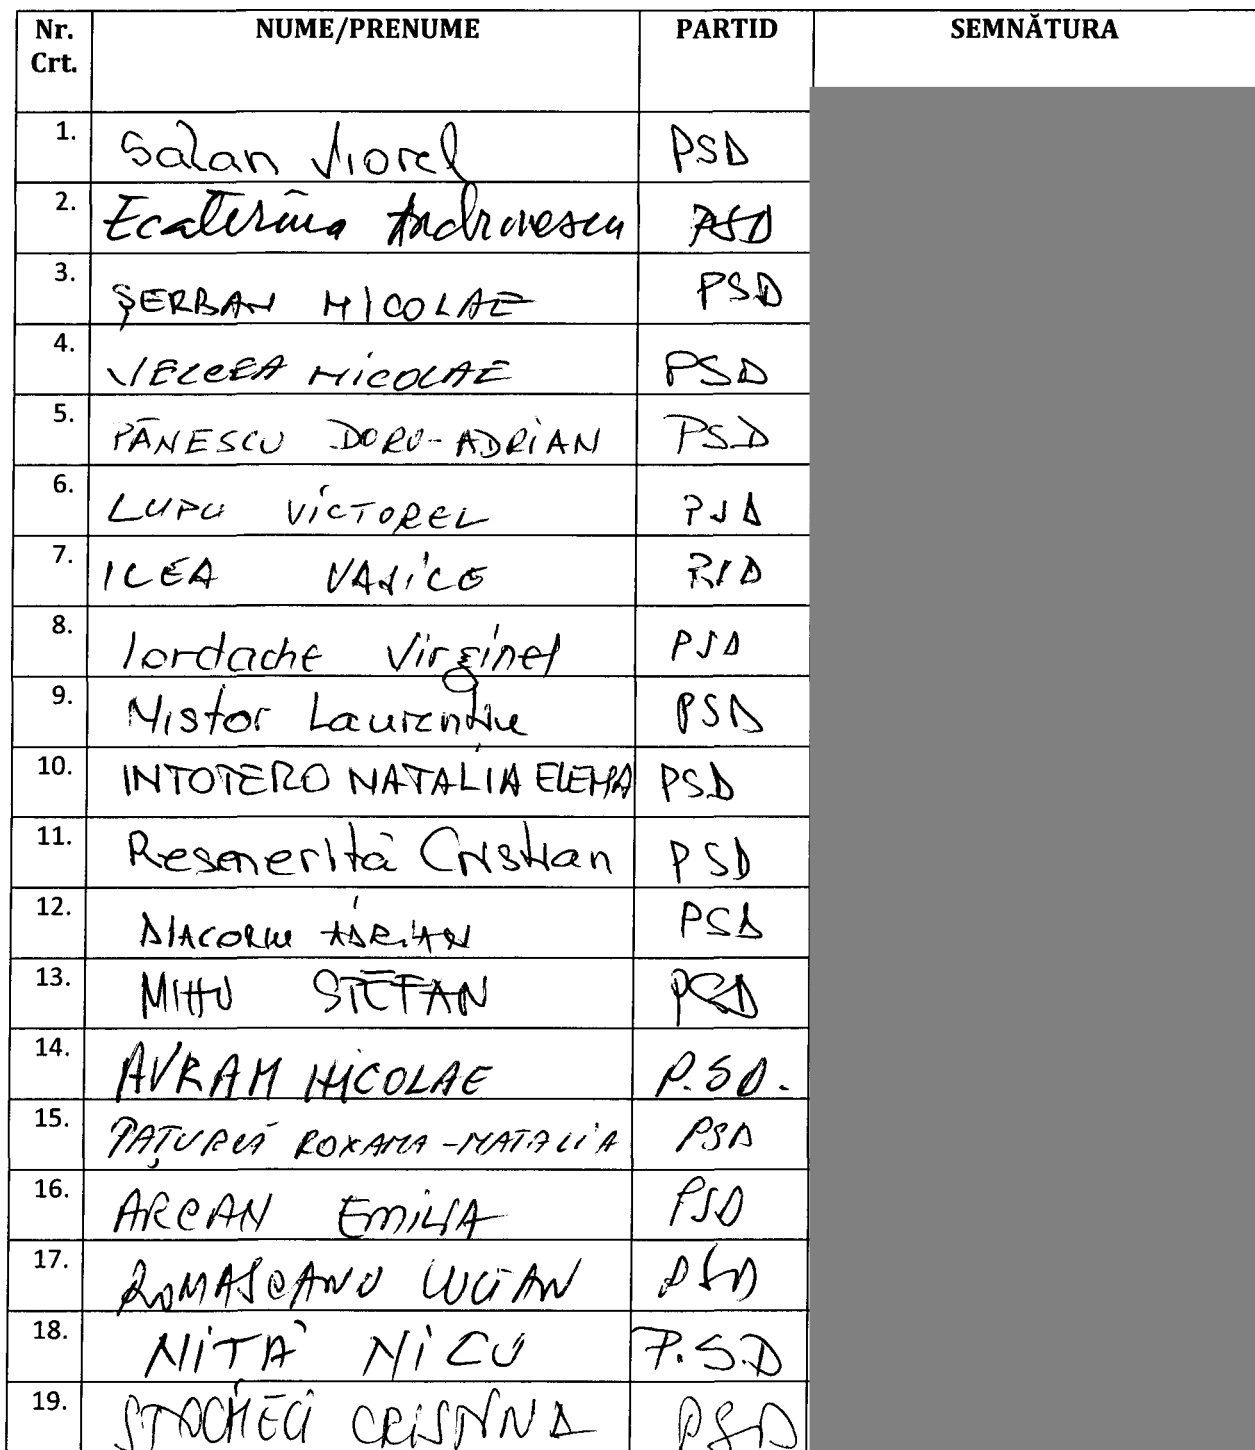 Nr. Crt. NUME/PRENUME PARTID SEMNĂTURA
1. Salan Viorel PSD
2. Ecaterina Andronescu PSD
3. ȘERBAN NICOLAE PSD
4. VELCEA NICOLAE PSD
5. PĂNESCU DORU-ADRIAN PSD
6. LUPU VICTOREL PSD
7. ILEA VASILE PSD
8. Iordache Virginel PSD
9. Nistor Laurențiu PSD
10. INTOTERO NATALIA ELENA PSD
11. Resmeriță Cristian PSD
12. DIACONU ADRIAN PSD
13. MIHU ȘTEFAN PSD
14. AVRAM NICOLAE P.SD.
15. PAȚURCĂ ROXANA-NATALIA PSD
16. ARCAN EMILIA PSD
17. ROMAȘCANU LUCIAN PSD
18. NIȚĂ NICU P.S.D
19. CRISTINA PSD